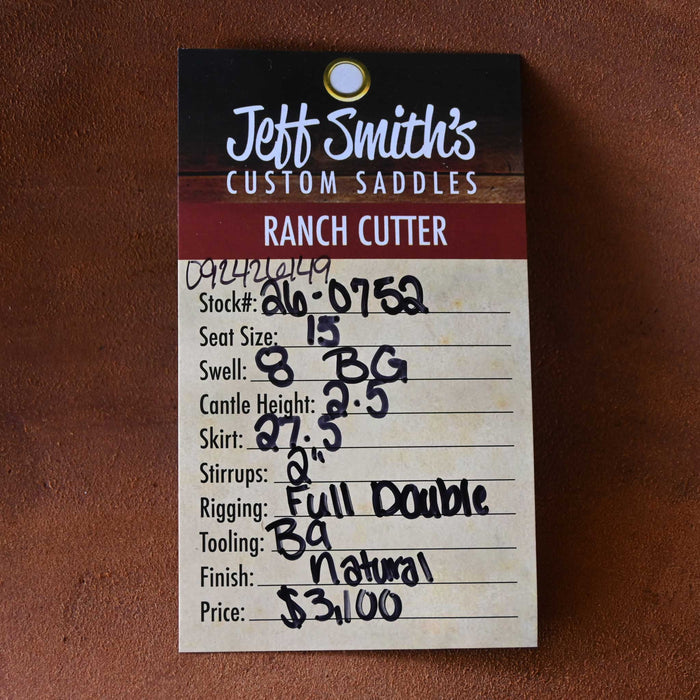 Jeff Smith's
CUSTOM SADDLES
RANCH CUTTER
092426149
Stock#: 26-0752
Seat Size: 15
Swell: 8 BG
Cantle Height: 2.5
Skirt: 27.5
Stirrups: 2"
Rigging: Full Double
Tooling: B9
Finish: Natural
Price: $3,100